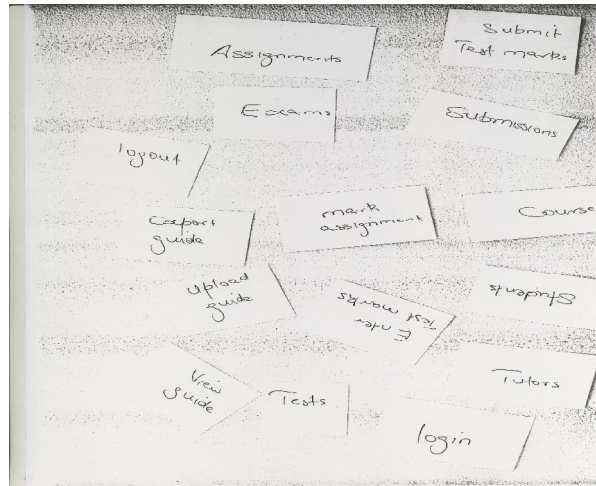 Assignments
Submit
Test marks
Exams
Submissions
logout
Export
guide
mark
assignment
Course
Upload
guide
Enter
Test marks
Students
View
guide
Tests
Tutors
login